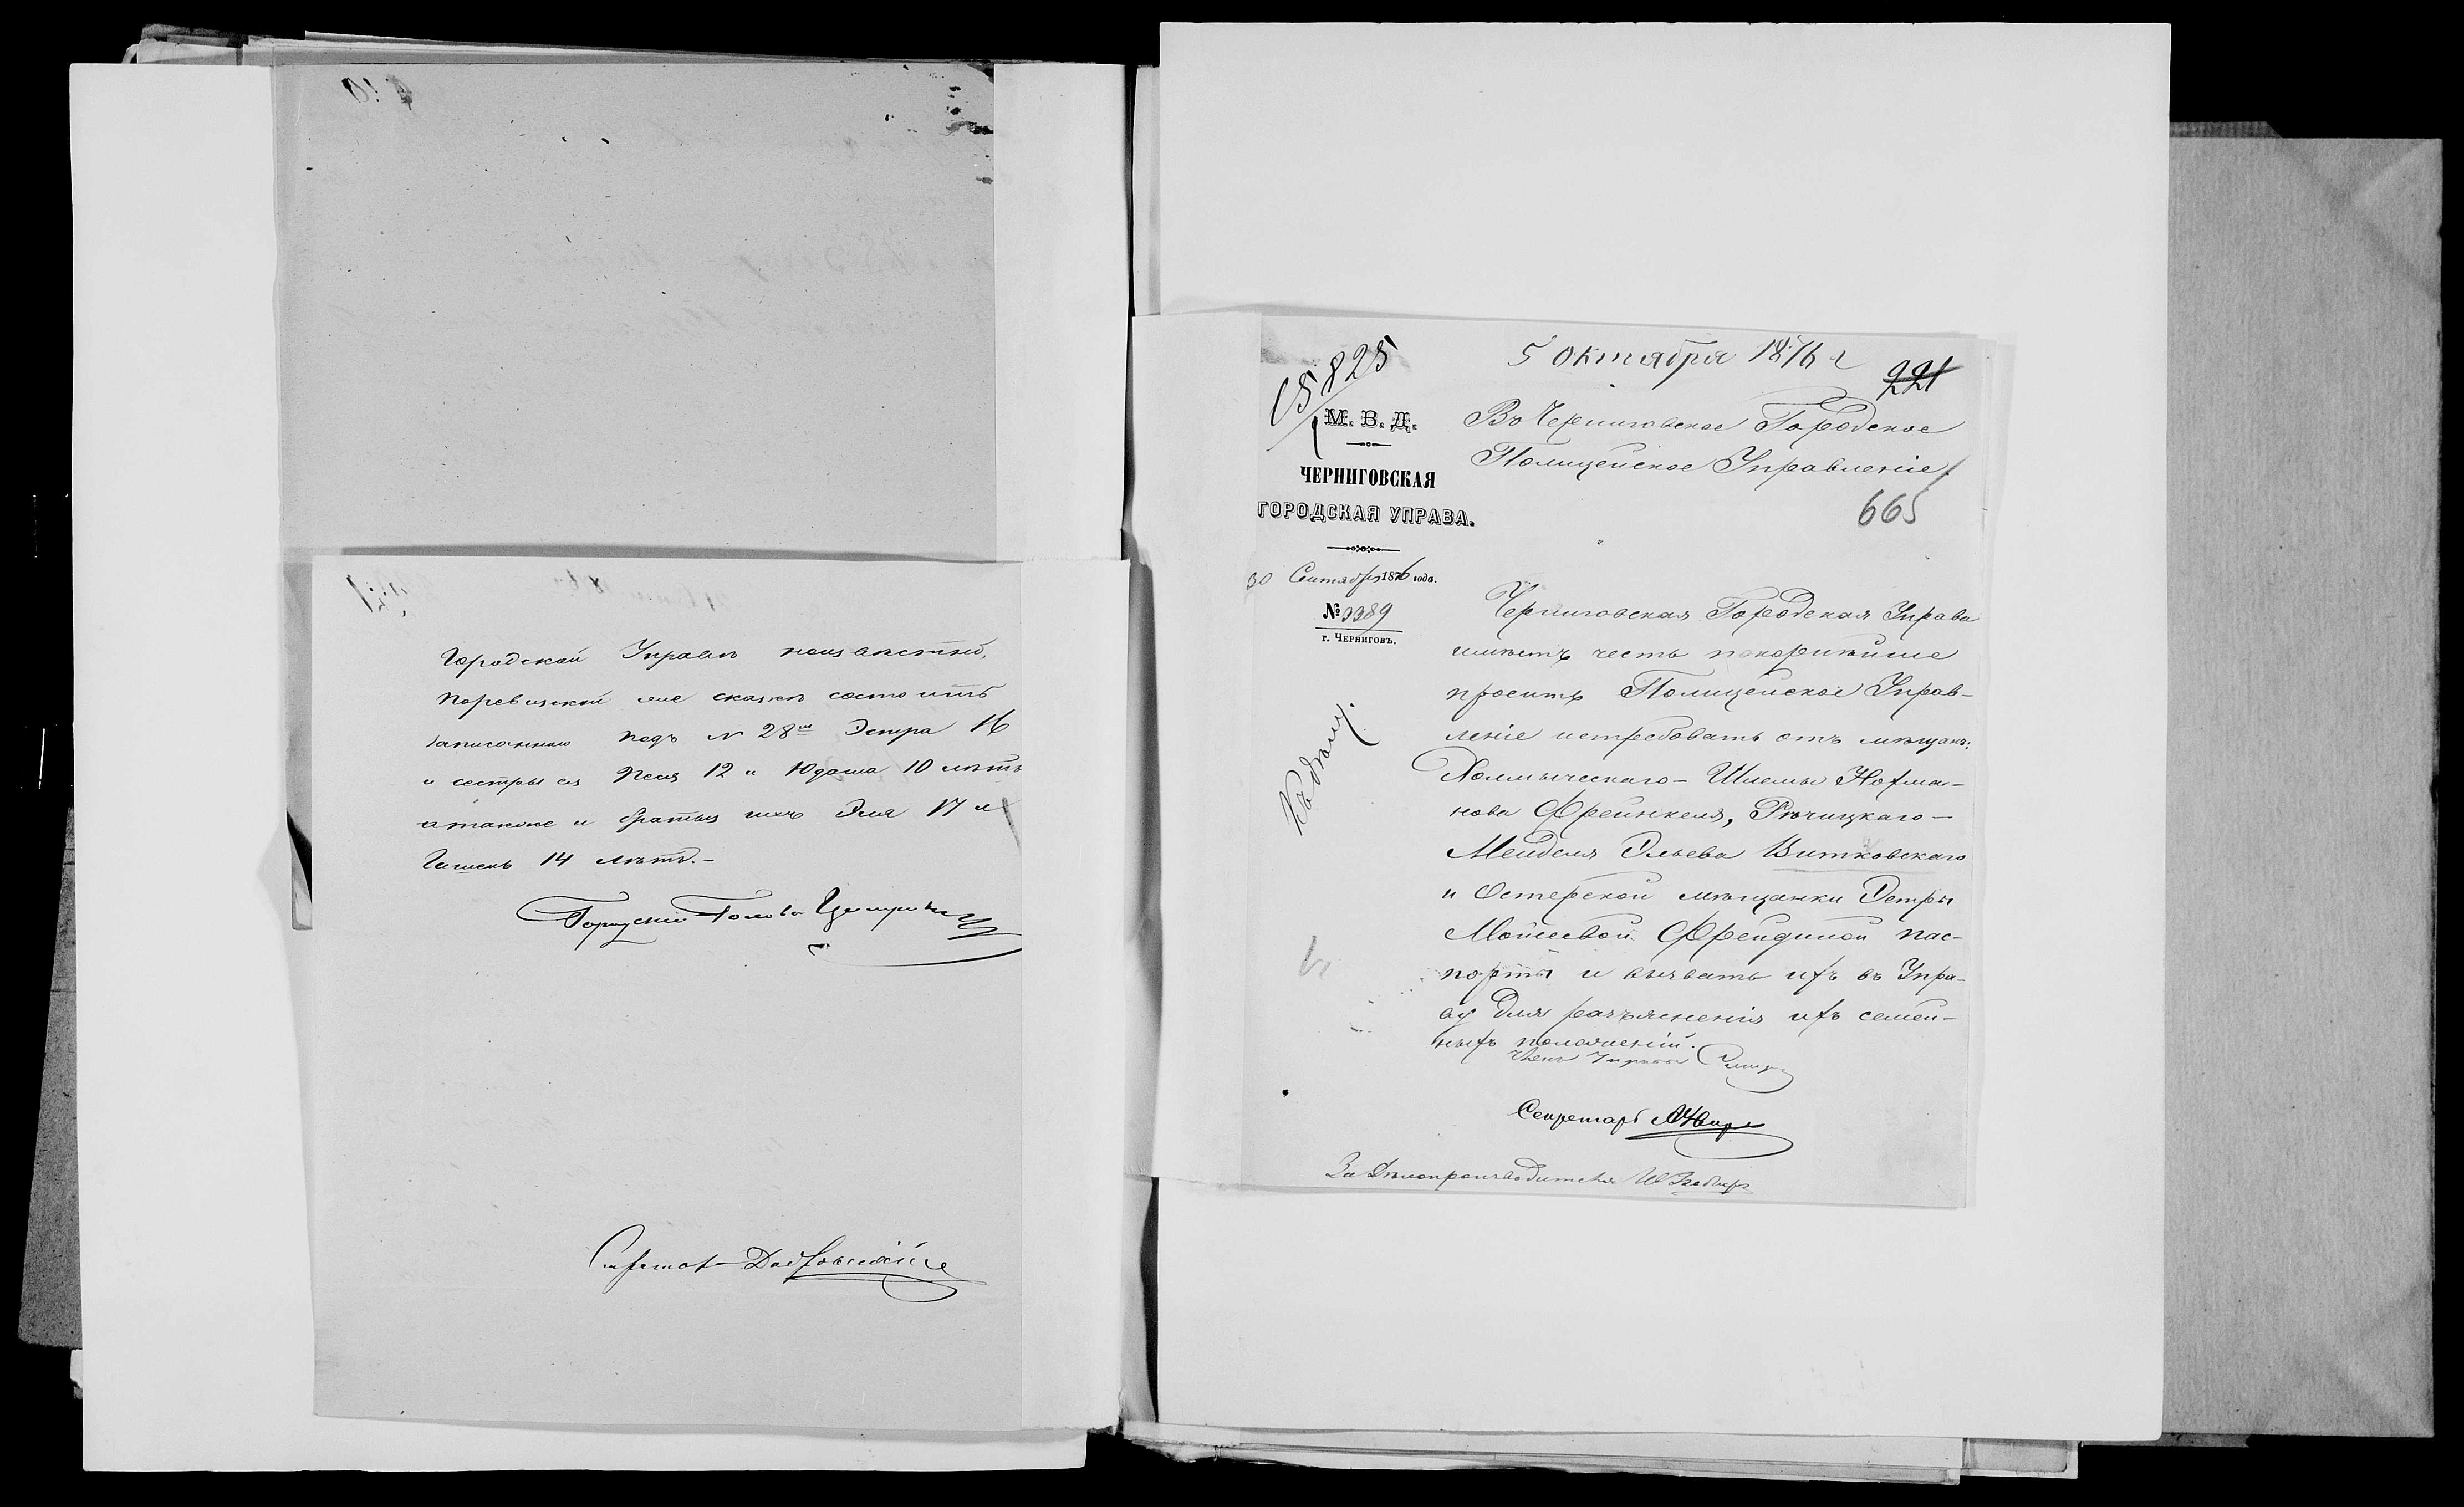 Городской Управѣ неизвѣстно,
по ревизской же сказкѣ состоитъ
записанною подъ № 28ᵐ Эстра 16
и сестры ея Песя 12 и Юдаша 10 лѣтъ
а также и братья ихъ Эля 17 и
14 лѣтъ.-
Городской Голова
Секретарь
5 октября 1876 г
221
15825
М. В. Д.
ЧЕРНИГОВСКАЯ
ГОРОДСКАЯ УПРАВА.
30 Сентября 1876 года.
№ 3389
г. Черниговъ.
Въ Черниговское Городское
Полицейское Управленіе.
665
Къ дѣлу.
Черниговская Городская Управа
имѣетъ честь покорнѣйше
просить Полицейское Управ-
леніе истребовать отъ мѣщанъ:
Холмыческаго - Шлемы Нохма-
нова Фрейнкеля, Рѣчицкаго -
Менделя Эльева Витковскаго
и Остерской мѣщанки Эстры
Мойсеевой Фрейдиной пас-
порты и вызвать ихъ въ Упра-
ву для разъясненія ихъ семей-
ныхъ положеній.
Членъ Управы
Секретарь
За Дѣлопроизводителя